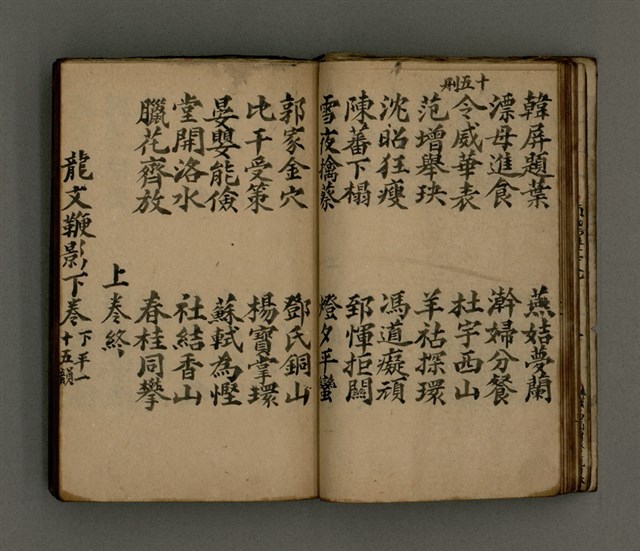 十五刪
韓屏題葉 燕姞夢蘭
漂母進食 澣婦分餐
令威華表 杜宇西山
范增舉玦 羊祜探環
沈昭狂瘦 馮道癡頑
陳蕃下榻 郅惲拒關
雪夜擒蔡 燈夕平蠻
郭家金穴 鄧氏銅山
比干受策 楊寶掌環
晏嬰能儉 蘇軾為慳
堂開洛水 社結香山
臘花齊放 春桂同攀
上卷終
龍文鞭影下卷 下平一
十五韻